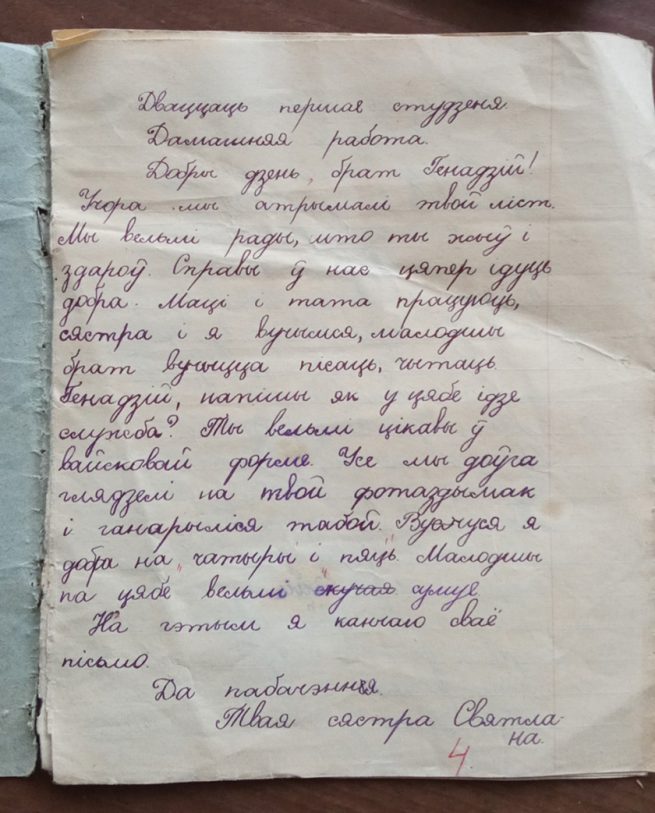 Дваццаць першае студзеня.
Дамашняя работа.
Добры дзень, брат Генадзій!
Учора мы атрымалі твой ліст.
Мы вельмі рады, што ты жыў і
здароў. Справы ў нас цяпер ідуць
добра. Маці і тата працуюць,
сястра і я вучымся, малодшы
брат вучыцца пісаць, чытаць.
Генадзій, напішы як у цябе ідзе
служба? Ты вельмі цікавы ў
вайсковай форме. Усе мы доўга
глядзелі на твой фотаздымак
і ганарыліся табой. Вучуся я
добра на "чатыры" і "пяць". Малодшы
па цябе вельмі скучая сумуе.
На гэтым я канчаю сваё
пісьмо.
Да пабачэння.
Твая сястра Святла-
на.
4.